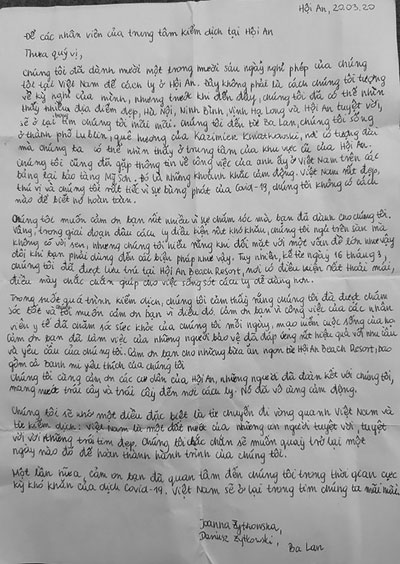 Hội An, 20.03.20
Để các nhân viên của trung tâm kiểm dịch tại Hội An
Thưa quý vị,
Chúng tôi đã dành mười một trong mười sáu ngày nghỉ phép của chúng
tôi tại Việt Nam để cách ly ở Hội An. Đây không phải là cách chúng tôi tưởng tượng
về kỳ nghỉ của mình, nhưng trước khi đến đây, chúng tôi đã có thể nhìn
thấy nhiều địa điểm đẹp, Hà Nội, Ninh Bình, Vịnh Hạ Long và Hội An tuyệt vời,
sẽ ở lại tim chúng tôi mãi mãi. Chúng tôi đến từ Ba Lan, chúng tôi sống
ở thành phố Lublin, quê hương của Kazimierz Kwiatkowski, nơi có tượng đài
mà chúng ta có thể nhìn thấy ở trung tâm của khu vực cũ của Hội An.
Chúng tôi cũng đã gặp thông tin về công việc của anh ấy ở Việt Nam trên các
bảng tại bảo tàng Mỹ Sơn. Đó là những khoảnh khắc cảm động. Việt Nam rất đẹp,
thú vị và chúng tôi rất tiếc vì sự bùng phát của Covid-19, chúng tôi không có cách
nào để biết nó hoàn toàn.
Chúng tôi muốn cảm ơn bạn rất nhiều vì sự chăm sóc mà bạn đã dành cho chúng tôi.
Vâng, trong giai đoạn đầu cách ly điều kiện rất khó khăn, chúng tôi ngủ trên sàn mà
không có vòi sen, nhưng chúng tôi hiểu rằng khi đối mặt với một vấn đề lớn như vậy
đôi khi bạn phải dùng đến các biện pháp như vậy. Tuy nhiên, kể từ ngày 16 tháng 3,
chúng tôi đã được lưu trú tại Hội An Beach Resort, nơi có điều kiện rất thoải mái,
điều này chắc chắn giúp cho việc sống sót cách ly dễ dàng hơn.
Trong suốt quá trình kiểm dịch, chúng tôi cảm thấy rằng chúng tôi đã được chăm
sóc tốt và tôi muốn cảm ơn bạn vì điều đó. Cảm ơn bạn vì công việc của các nhân
viên y tế đã chăm sóc sức khỏe của chúng tôi mỗi ngày, mạo hiểm cuộc sống của họ.
Cảm ơn bạn đã làm việc của những người bảo vệ đã đáp ứng rất hiệu quả với nhu cầu
và yêu cầu của chúng tôi. Cảm ơn bạn cho những bữa ăn ngon từ Hội An Beach Resort, bao
gồm cả bánh mì yêu thích của chúng tôi
Chúng tôi cũng cảm ơn các cư dân của Hội An, những người đã đoàn kết với chúng tôi,
mang nước trái cây và trái cây đến nơi cách ly. Nó đã vô cùng cảm động.
Chúng tôi sẽ nhớ một điều đặc biệt là từ chuyến đi vòng quanh Việt Nam và
từ kiểm dịch: Việt Nam là một đất nước của những con người tuyệt vời, tuyệt
vời với những trái tim đẹp. Chúng tôi chắc chắn sẽ muốn quay trở lại một
ngày nào đó để hoàn thành hành trình của chúng tôi.
Một lần nữa, cảm ơn bạn đã quan tâm đến chúng tôi trong thời gian cực
kỳ khó khăn của dịch Covid-19. Việt Nam sẽ ở lại trong tim chúng ta mãi mãi.
Joanna Żytkowska,
Dariusz Żytkowski,
Ba Lan